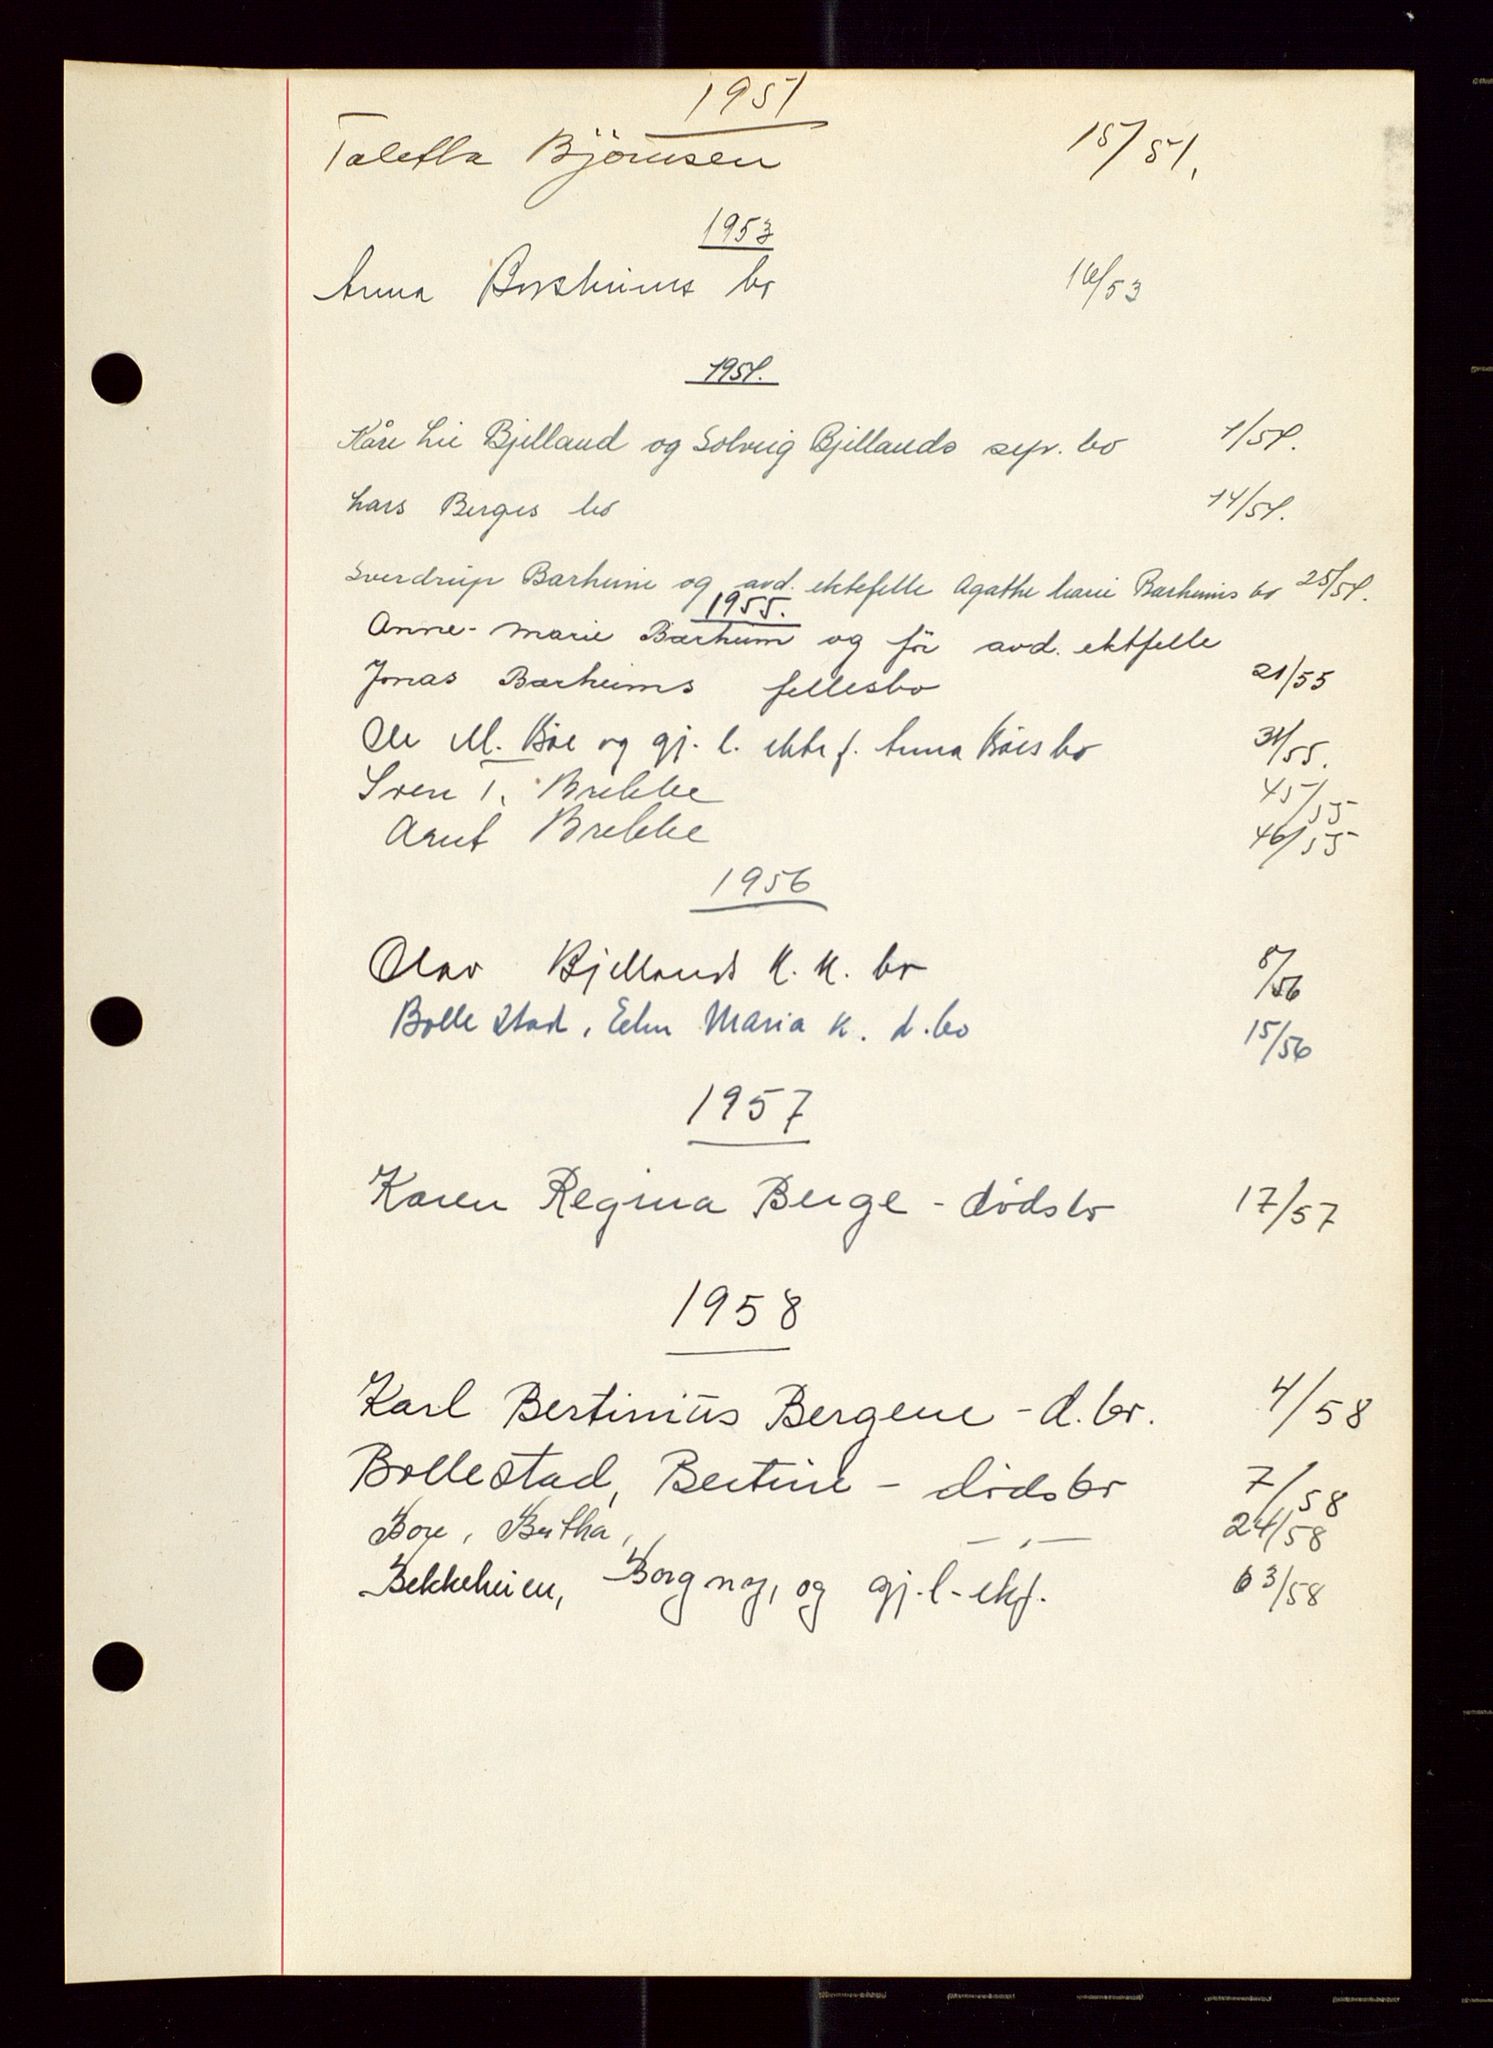 1951
Taletta Bjørnsen 15/51.
1953
Anna Borsheims bo 16/53
1954.
Kåre Lie Bjelland og Solveig Bjellands sepr. bo 1/54.
Lars Berges bo 14/54.
Sverdrup Barheim og avd. ektefelle Agathe Marie Barheims bo 25/54.
1955.
Anne-Marie Bærheim og för avd. ektfelle
Jonas Bærheims fellesbo 21/55
Ole M. Böe og gj. l. ektef. Anna Böes bo 31/55.
Sven T. Brekke 45/55
Arnt Brekke 46/55
1956
Olav Bjellands K. K. bo 8/56
Bollestad, Maria K. d.bo 15/56
1957
Karen Regina Berge - dödsbo 17/57
1958
Karl Bertinius Bergene - d. bo. 4/58
Bollestad, Bertine - dödsbo 7/58
Bore, Bertha, — , — 24/58
Bekkeheien, Borgny, og gj. l. - ektf. 63/58